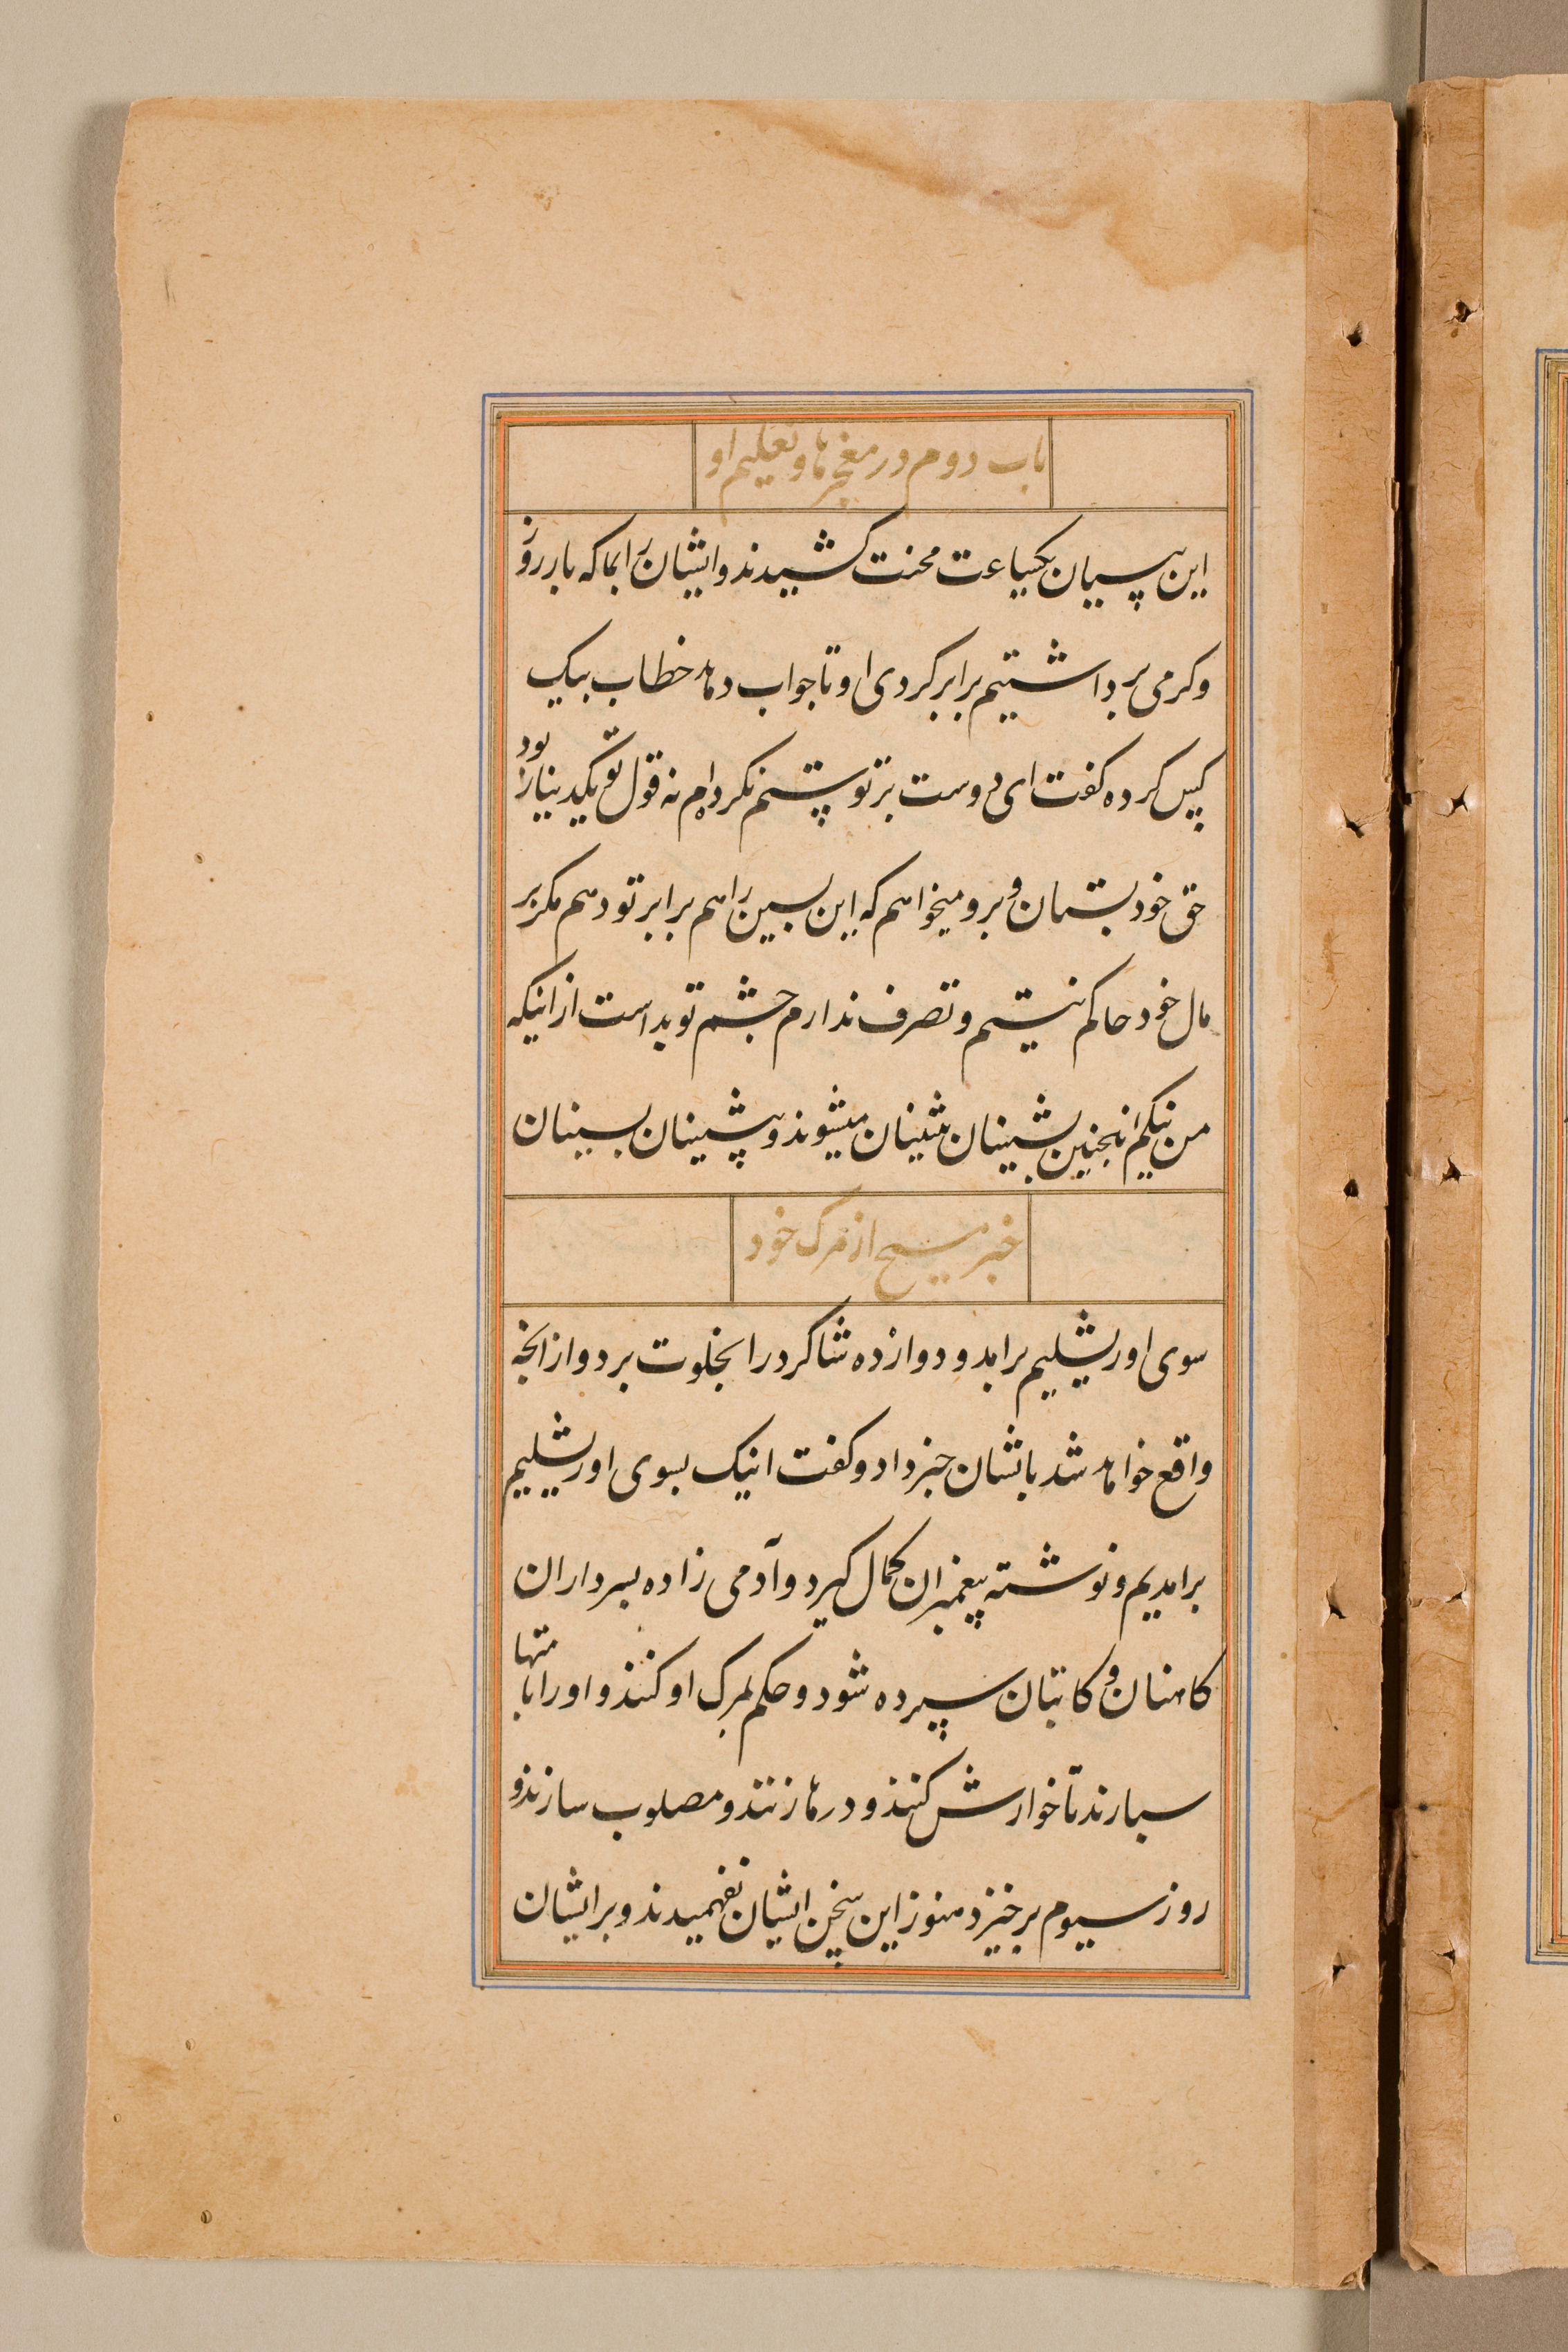 باب دوم در معجزها و تعلیم او
این پسیان یکساعت محنت کشیدند و ایشان را بما که بار روز
و کرمی برداشتیم برابر کردی او تا جواب دهد خطاب بیک
کس کرده کفت ای دوست بر تو ستم نکرده‌ام نه قول تو بیکدینار بود
حق خود بستان و برو میخواهم که این پسین را هم برابر تو دهم مکر بر
مال خود حاکم نیستم و تصرف ندارم چشم تو بد است از اینکه
من نیکم انچنین پسینان پیشینان میشوند و پیشینان پسینان
خبر مسیح از مرک خود
سوی اورشلیم برامد و دوازده شاکرد را بخلوت برد و از انچه
واقع خواهد شد باشان خبر داد و کفت اینک بسوی اورشلیم
برامدیم و نوشته پیغمبران کمال کیرد و آدمی زاده بسرداران
کاهنان و کاتبان سپرده شود و حکم بمرک او کنند و او را بامتها
سپارند تا خوارش کنند و درها زنند و مصلوب سازند و
روز سیوم برخیزد هنوز این سخن ایشان نفهمیدند و بر ایشان